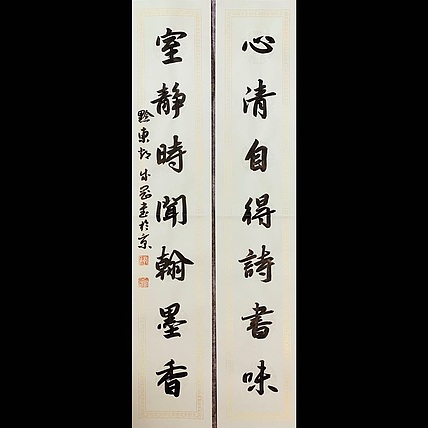 心清自得詩書味
室静時聞翰墨香
黔東
書於京